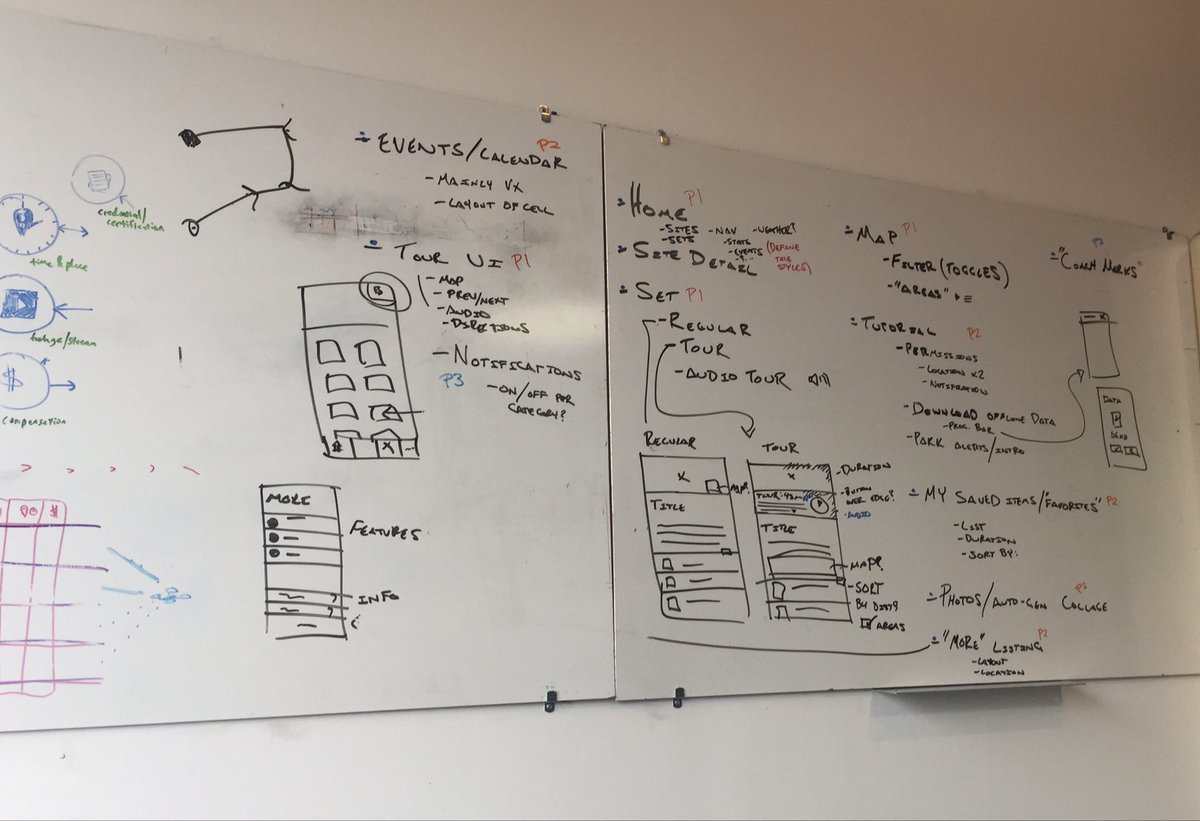 credential/
certification
time & place
footage/stream
compensation
EVENTS/CALENDAR P2
- MAINLY VX
- LAYOUT OF CELL
TOUR UI P1
- MAP
- PREV/NEXT
- AUDIO
- DIRECTIONS
- NOTIFICATIONS
P3
- ON/OFF PER
CATEGORY?
MORE
FEATURES
INFO
HOME P1
- SITES - NAV - WEATHER?
- SETS - STATE
- EVENTS (DEFINE
TILE
STYLES)
SITE DETAIL
SET P1
- REGULAR
- TOUR
- AUDIO TOUR
REGULAR
X
MAP?
TITLE
TOUR
X
- DURATION
- BUTTON
OVER EDGE?
- AUDIO
TITLE
MAP?
- SORT
BY DIST?
AREAS
MAP P1
- FILTER (TOGGLES)
- "AREAS"
TUTORIAL P2
- PERMISSIONS
- LOCATION X2
- NOTIFICATION
- DOWNLOAD OFFLINE DATA
- PROG. BAR
- PARK ALERTS/INTRO
- MY SAVED ITEMS/"FAVORITES" P2
- LIST
- DURATION
- SORT BY:
- PHOTOS/AUTO-GEN COLLAGE
- "MORE" LISTING P2
- LAYOUT
- LOCATION
"COACH MARKS"
X
DATA